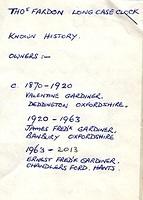 THOS FARDON LONG CASE CLOCK
KNOWN HISTORY.
OWNERS :—
c. 1870-1920
VALENTINE GARDINER.
DEDDINGTON OXFORDSHIRE.
1920 - 1963
JAMES FREDK GARDINER.
BANBURY OXFORDSHIRE
1963 - 2013
ERNEST FREDK GARDINER.
CHANDLERS FORD. HANTS.